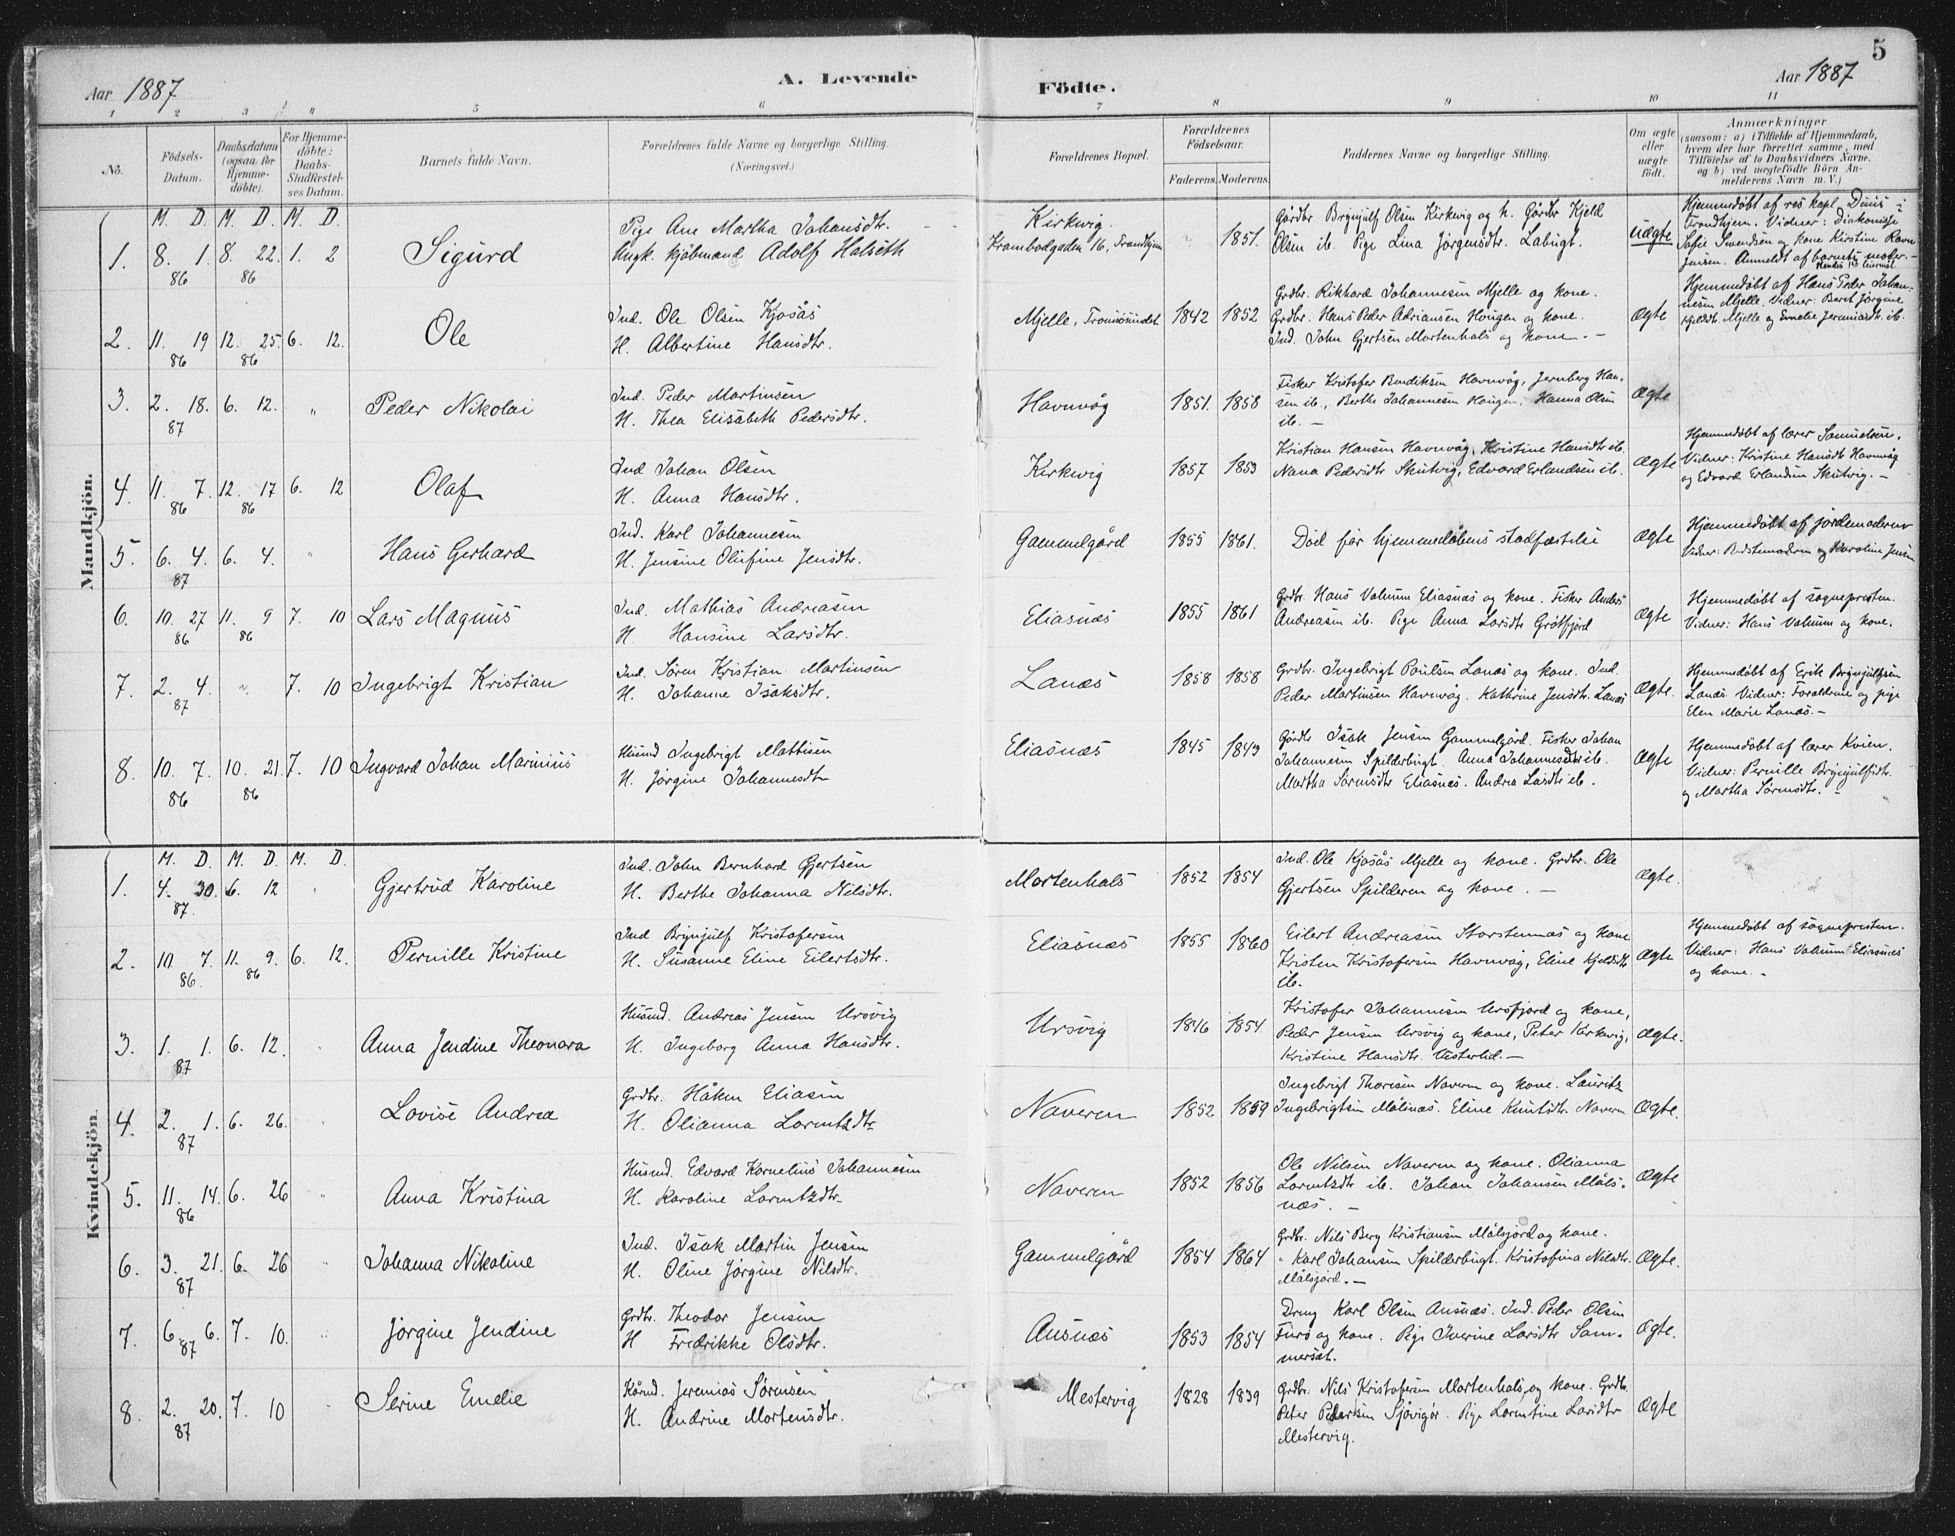 5
Aar 1887
A. Levende
Födte.
Aar 1887
1 2 3 4 5 6 7 8 9 10 11
No.
Födsels-Datum.
Daabsdatum (ogsaa for Hjemme-döbte).
For Hjemme-döbte: Daabs-Stadfæstel-ses Datum.
Barnets fulde Navn.
Forældrenes fulde Navne og borgerlige Stilling.
(Næringsvei.)
Forældrenes Bopæl.
Forældrenes Födselsaar.
Faderens. Moderens.
Faddernes Navne og borgerlige Stilling.
Om ægte eller uægte födt.
Anmærkninger
(saasom: a) i Tilfælde af Hjemmedaab,
hvem der har forrettet samme, med
Tilföielse af to Daabsvidners Navne,
og b) ved uægtefödte Börn An-
melderens Navn m. V.)
Mandkjön.
M. D. M. D. M. D.
1. 8. 1. 86 8. 22. 86 1. 2 Sigurd
Pige Ane Martha Johansdtr.
Ungk. kjøbmand Adolf Halseth
Kirkvig
Krambodgaden 16, Trondhjem
" 1851.
Gårdbr. Brynjulf Olsen Kirkvig og h. Gårdbr Kjeld
Olsen ib. Pige Lina Jørgensdtr. Labugt.
uægte
Hjemmedøbt af res kapl. Duus i
Trondhjem. Vidner: Diakonisse
Sofie Svendsen og kone Kirstine Ravn
Jensen. Anmeldt af barnets moder.
2. 11. 19 86 12. 25. 86 6. 12. Ole
Ind. Ole Olsen Kjosås
H. Albertine Hansdtr.
Mjelle, Tromsøsundet 1842 1852
Grdbr. Rikhard Johannesen Mjelle og kone.
Grdbr. Hans Peder Adriansen Hougen og kone.
Ind. John Gjertsen Mortenhals og kone. -
Ægte
Hjemmedøbt af Hans Peder Johan-
nesen Mjelle. Vidner: Beret Jørgine
Kjeldsdtr. Mjelle og Emelie Jeremiasdtr. ib.
3. 2. 18. 87 6. 12. " Peder Nikolai
Ind. Peder Martinsen
H. Thea Elisabeth Pedersdtr.
Havnvåg 1851. 1858
Fisker Kristofer Bendiksen Havnvåg, Jernberg Han-
sen ib., Berthe Johannesen Hougen, Hanna Olsen
ib. -
Ægte
4. 11. 7. 86 12. 17 86 6. 12 Olaf
Ind Johan Olsen
H. Anna Hansdtr.
Kirkvig 1857 1853
Kristian Hansen Havnvåg, Kristine Hansdtr ib.
Nana Pedersdtr Skutvig, Edvard Erlandsen ib.
Ægte
Hjemmedøbt af lærer Samuelsen.
Vidner: Kristine Hansdtr Havnvåg
og Edvard Erlandsen Skutvig. -
5. 6. 4. 87 6. 4. " Hans Gerhard
Ind. Karl Johannesen
H. Jensine Olufine Jensdtr.
Gammelgård 1855 1861.
Død før hjemmedåbens stadfæstelse
Ægte
Hjemmedøbt af jordemoderen
Vidner: Bedstemoderen og Karoline Jensen
6. 10. 27 86 11. 9 86 7. 10 Lars Magnus
Ind. Mathias Andreasen
H. Hansine Larsdtr.
Eliasnæs 1855 1861
Grdbr. Hans Valnum Eliasnæs og kone. Fisker Anders
Andreasen ib. Pige Anna Larsdtr Grøtfjord
Ægte
Hjemmedøbt af sognepresten.
Vidner: Hans Valnum og kone.
7. 2. 4. 87 " 7. 10 Ingebrigt Kristian
Ind. Søren Kristian Martinsen
H. Johanne Isaksdtr.
Lanæs 1858 1858
Grdbr. Ingebrigt Paulsen Lanæs og kone. Ind.
Peder Martinsen Havnvåg. Kathrine Jensdtr. Lanæs
Ægte.
Hjemmedøbt af Erik Brynjulfsen
Lanæs. Vidner: Forældrene og pige
Elen Marie Lanæs. -
8. 10. 7. 86 10. 21. 86 7. 10 Ingvard Johan Marinius
Husmd Ingebrigt Mattisen
H. Jørgine Johannesdtr
Eliasnæs 1845 1843
Gårdbr Isak Jensen Gammelgård. Fisker Johan
Johannesen Spilderbugt. Anna Johannesdtr ib.
Martha Sørensdtr Eliasnæs. Andrea Larsdtr ib.
Ægte
Hjemmedøbt af lærer Kvien.
Vidner: Pernille Brynjulfsdtr.
og Martha Sørensdtr. -
Kvindekjön.
M. D. M. D. M. D.
1. 4. 30. 87. 6. 12 " Gjertrud Karoline
Ind. John Bernhard Gjertsen
H. Berthe Johanna Nilsdtr.
Mortenhals 1852 1854
Ind. Ole Kjosås Mjelle og kone. Grdbr. Ole
Gjertsen Spilderen og kone. -
Ægte.
2. 10. 7. 86. 11. 9. 86 6. 12. Pernille Kristine
Ind Brynjulf Kristofersen
H. Susanne Eline Eilertsdtr.
Eliasnæs 1855 1860
Eilert Andreasen Storstennæs og kone
Kristen Kristofersen Havnvåg, Eline Kjeldsdtr
ib.
Ægte
Hjemmedøbt af sognepresten.
Vidner: Hans Valnum Eliasnæs
og kone. -
3. 1. 1. 87 6. 12. Anna Jendine Theonora
Husmd. Andreas Jensen Ursvig
H. Ingeborg Anna Hansdtr.
Ursvig 1846 1854
Kristofer Johannesen Ursfjord og kone,
Peder Jensen Ursvig og kone, Peter Kirkvig,
Kristine Hansdtr. Vesterlid. -
Ægte.
4. 2. 1. 87 6. 26. Lovise Andrea
Grdbr. Håken Eliasen
H. Olianna Lorentzdtr
Naveren 1852 1859
Ingebrigt Thoresen Naveren og kone. Lauritz
Ingebrigtsen Målsnæs. Eline Knutsdtr. Naveren
Ægte.
5. 11. 14. 86 6. 26 Anna Kristina
Husmd. Edvard Kornelius Johannesen
H. Karoline Lorentzdtr
Naveren 1852 1856
Ole Nilsen Naveren og kone. Olianna
Lorentzdtr ib. Johan Johansen Måls-
næs. -
Ægte
6. 3. 21. 87 6. 26 Johanna Nikoline
Ind. Isak Martin Jensen
H. Oline Jørgine Nilsdtr.
Gammelgård 1854 1864
Grdbr. Nils Berg Kristiansen Målsjord og kone.
" Karl Johansen Spilderbugt. Kristofina Nilsdtr.
Målsjord. -
Ægte.
7. 6. 6. 87 7. 10. Jørgine Jendine
Grdbr. Theodor Jensen
H Fredrikke Olsdtr.
Ansnæs 1853 1854
Dreng Karl Olsen Ansnæs. Ind. Peder Olsen
Furø og kone. Pige Iverine Larsdtr Som-
merset.
Ægte.
8. 2. 20. 87 7. 10 Serine Emelie
Kårmd. Jeremias Sørensen
H. Andrine Mortensdtr.
Mestervig 1828 1839
Grdbr. Nils Kristofersen Mortenhals og kone. Grdbr.
Peter Pedersen Sjøvigør. Pige Lorentine Larsdtr
Mestervig.
Ægte